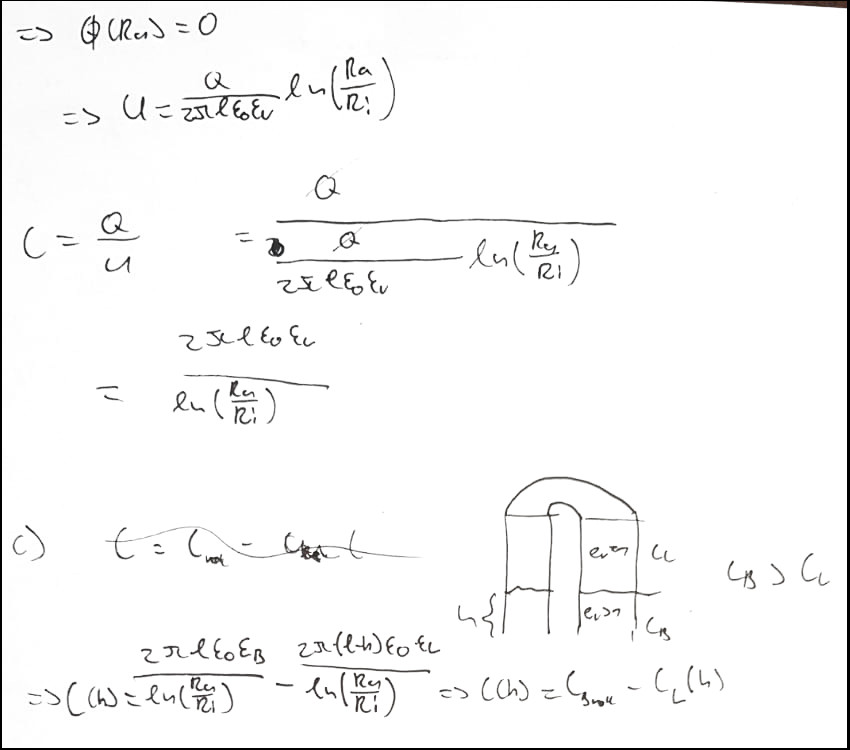 => ϕ(Ra) = 0
=> U = Q/(2πlε₀εᵣ) ln(Ra/Ri)
C = Q/U = Q/(Q/(2πlε₀εᵣ) ln(Ra/Ri))
= 2πlε₀εᵣ/ln(Ra/Ri)
c)
εᵣ=1 C_L
C_B > C_L
h{ εᵣ>1 C_B
=> C(h) = 2πlε₀ε_B/ln(Ra/Ri) - 2π(l-h)ε₀ε_L/ln(Ra/Ri) => C(h) = C_Bvoll - C_L(h)